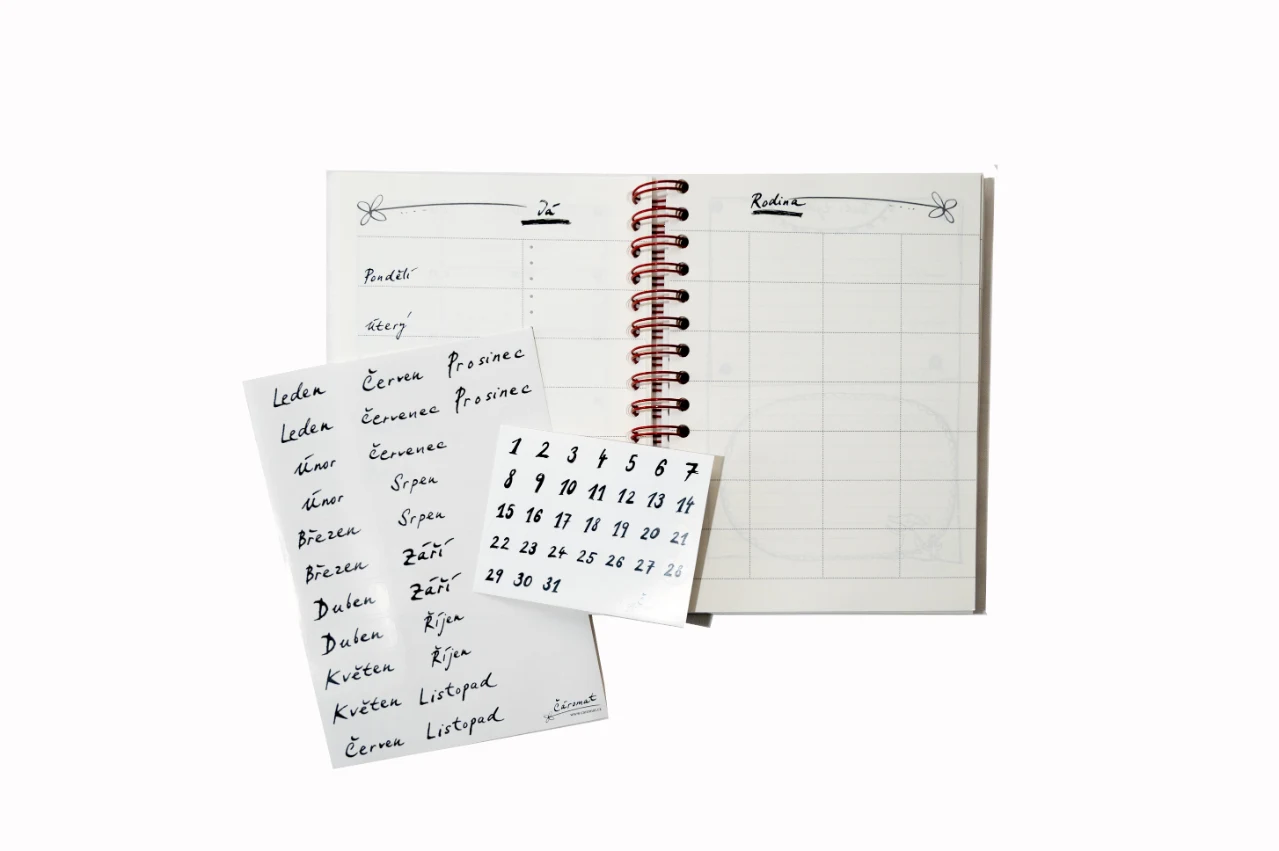 Já
Rodina
Pondělí
Úterý
Leden
Leden
Únor
Únor
Březen
Březen
Duben
Duben
Květen
Květen
Červen
Červen
Červenec
Červenec
Srpen
Srpen
Září
Září
Říjen
Říjen
Listopad
Listopad
Prosinec
Prosinec
Čáromat
www.caromat.cz
1 2 3 4 5 6 7
8 9 10 11 12 13 14
15 16 17 18 19 20 21
22 23 24 25 26 27 28
29 30 31